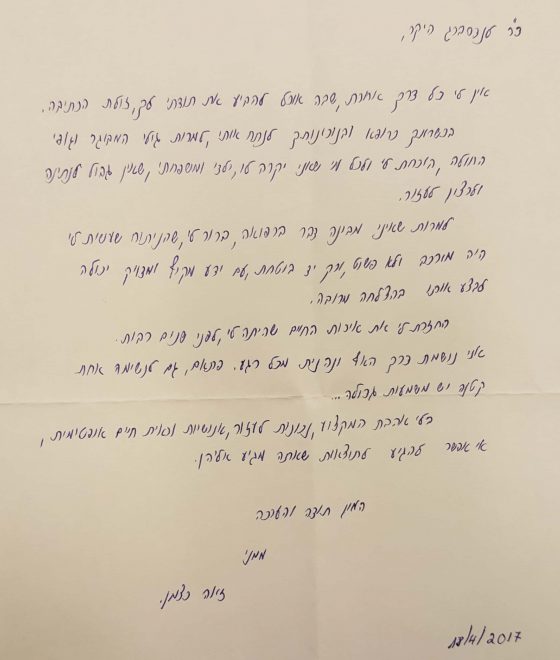 ד"ר לנצסברג היקר,
אין לי כל דרך אחרת, שבה אוכל להביע את תודתי לך, זולת הכתיבה.
בכשרונך כרופא ובנדיבותך לנתח אותי, למרות גילי המבוגר וגופי
החולה, הוכחת לי ולכל מי שאני יקרה לו, ילדי ומשפחתי, שאין גבול לנתינה
ולרצון לעזור.
למרות שאיני מבינה דבר ברפואה, ברור לי, שהניתוח שעשית לי
היה מורכב ולא פשוט, ורק יד בוטחת, עם ידע מקיף ומדויק יכולה
לבצע אותו בהצלחה מרובה.
החזרת לי את איכות החיים שהיתה לי, לפני שנים רבות.
אני נושמת דרך האף ונהנית מכל רגע. פתאום, גם לנשימה אחת
קטנה יש משמעות גדולה...
בלי אהבת המקצוע, נכונות לעזור, אנושיות וראית חיים אופטימית,
אי אפשר להגיע לתוצאות שאתה מגיע אליהן.
המון תודה והערכה
ממני
כצמן.
/4/2017